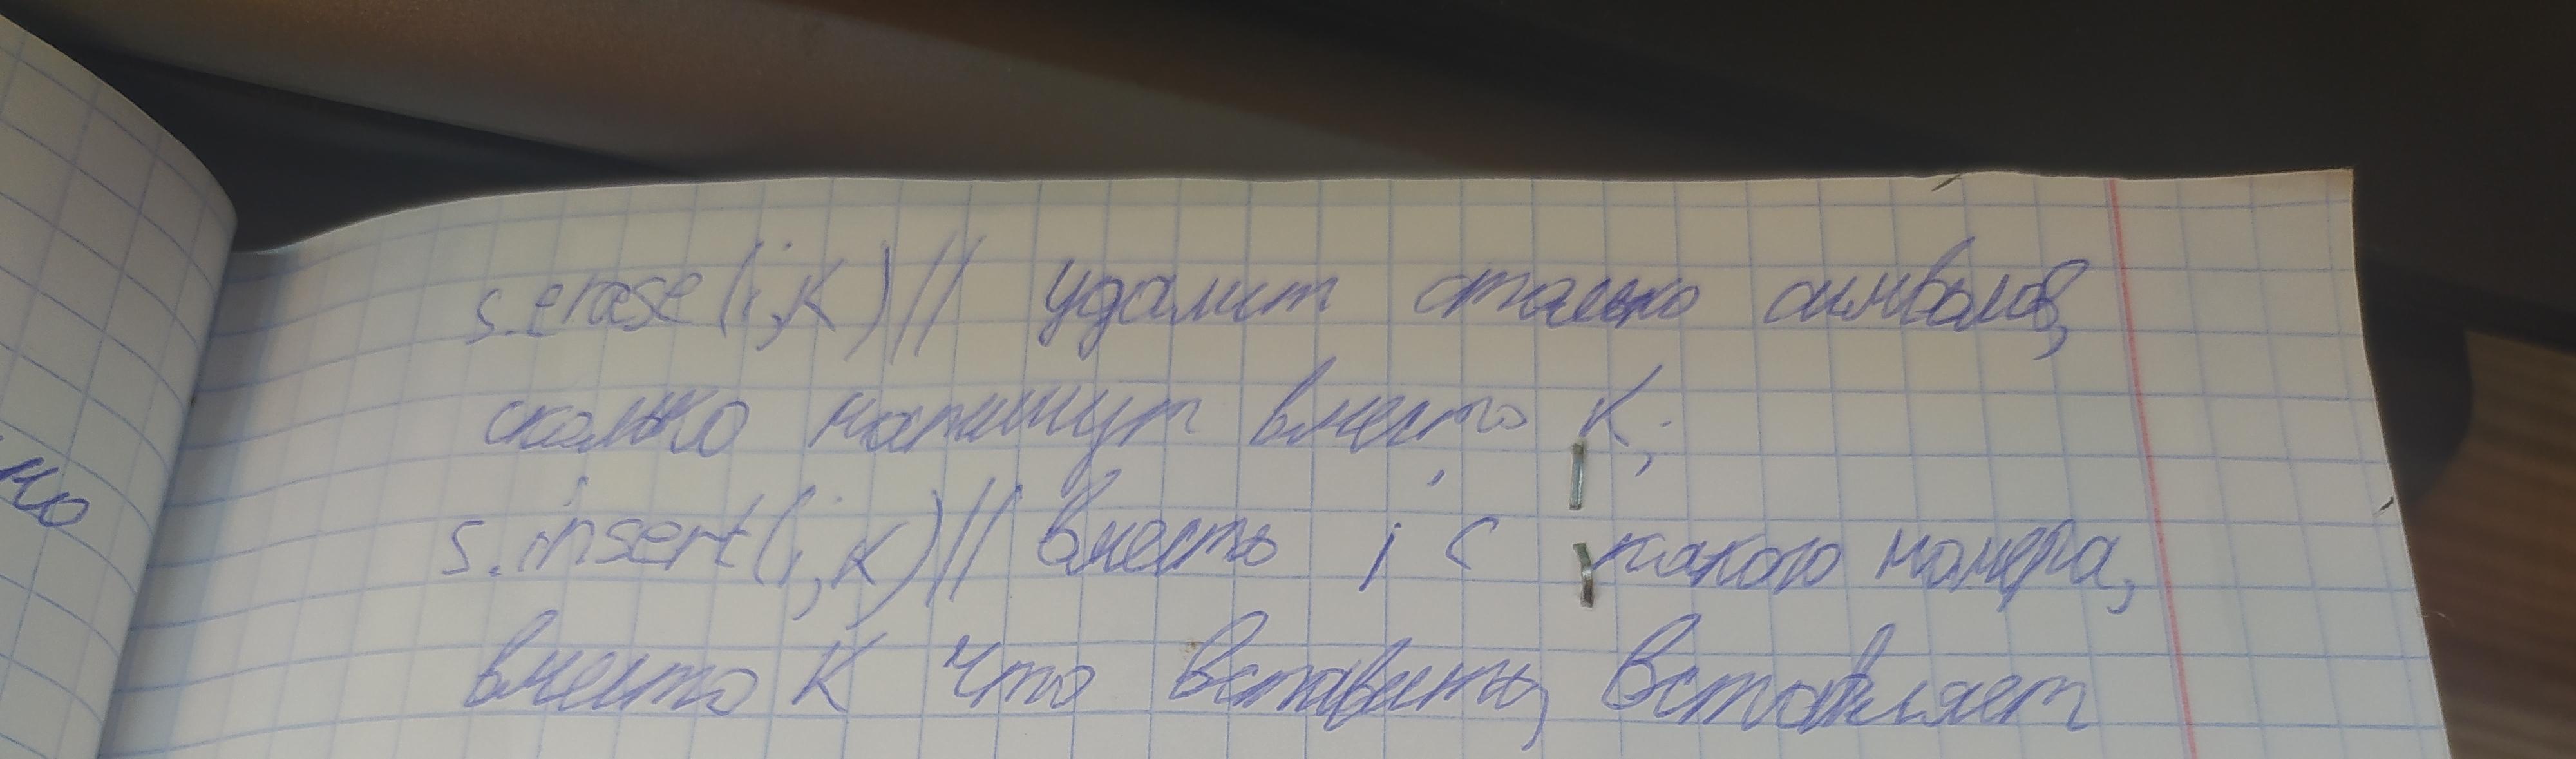 s.erase(i,K)// удалит столько символов,
сколько напишут вместо K;
s.insert(i,K)// вместо i с какого номера,
вместо K что вставить, вставляет
но